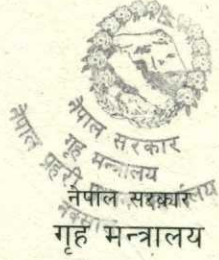 नेपाल सरकार
गृह मन्त्रालय
नेपाल प्रहरी
नेपाल सरकार
गृह मन्त्रालय